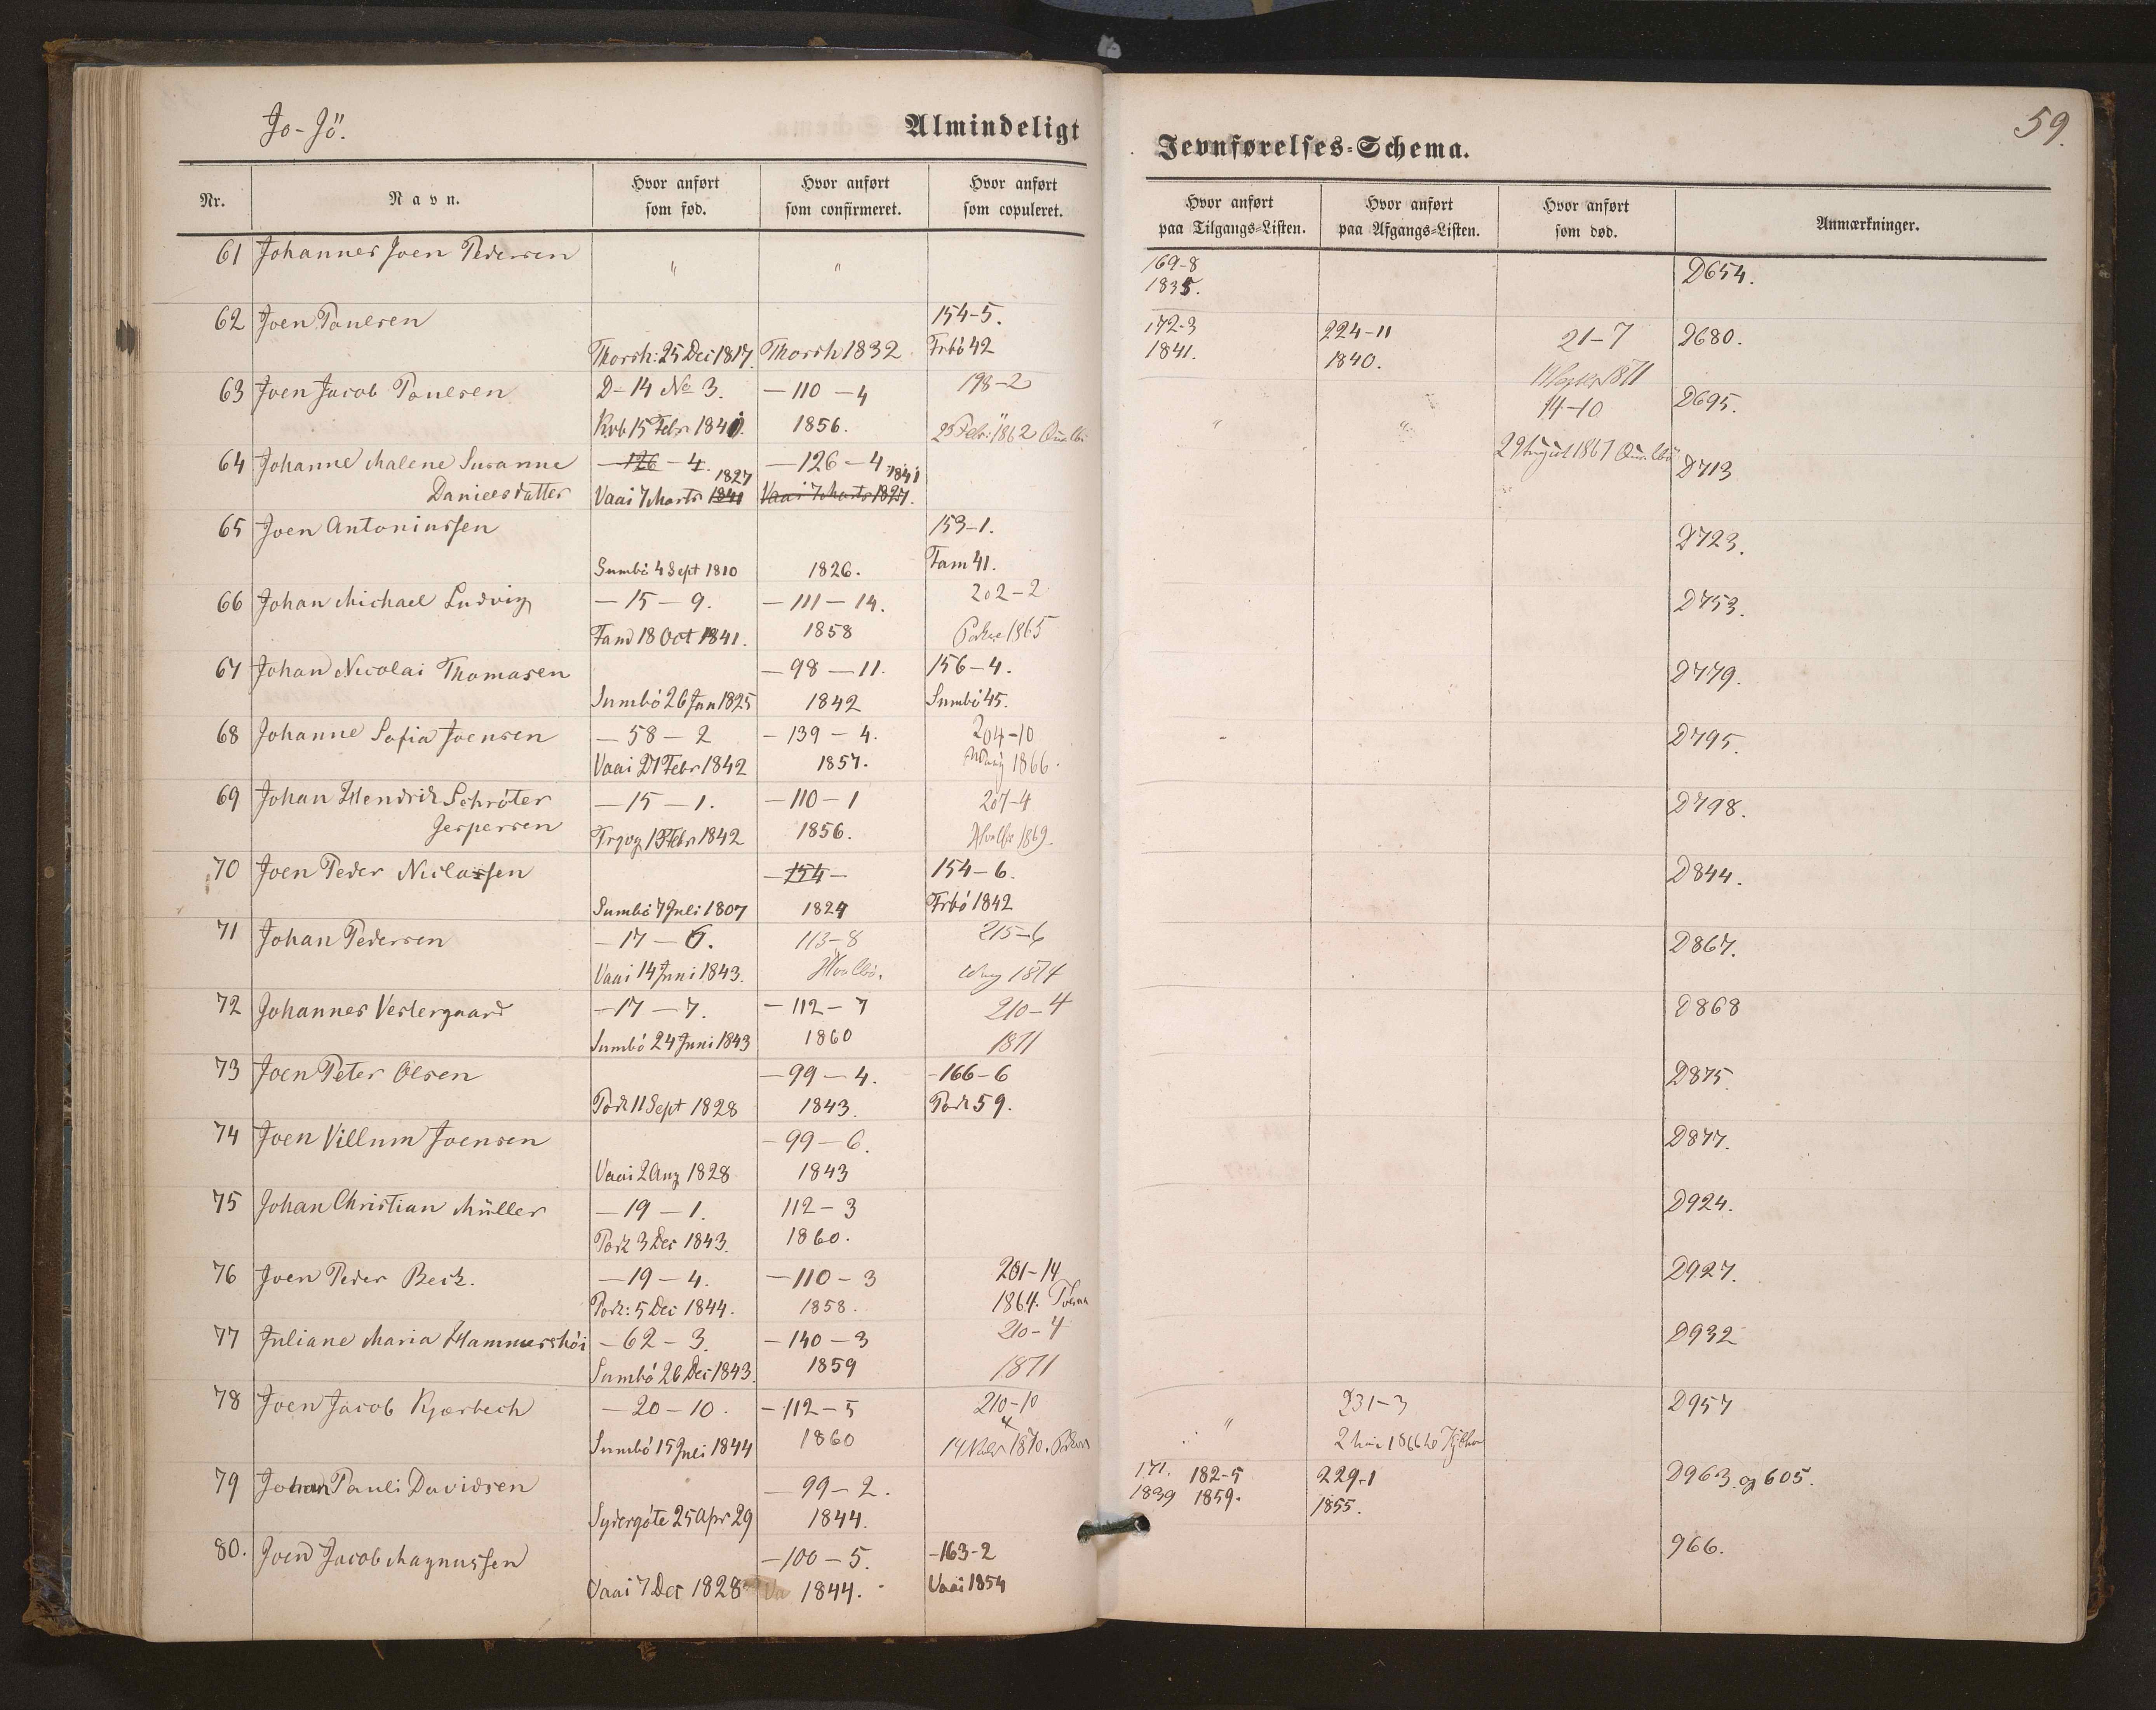 Jo-Jö.
Almindeligt
Jevnførelses-Schema.
59.
Nr.
Navn.
Hvor anført som fød.
Hvor anført som confirmeret.
Hvor anført som copuleret.
Hvor anført paa Tilgangs-Listen.
Hvor anført paa Afgangs-Listen.
Hvor anført som død.
Anmærkninger.
61 Johannes Joen Pedersen " " 169-8 D654.
1835.
62 Joen Poulsen 154-5. 172-3 224-11 21-7 D680.
Thorsh: 25 Dec 1817. Thorsh 1832 Frbö 42 1841. 1840. 1871
63 Joen Jacob Poulsen D-14 No 3. -110-4 198-2 " " 14-10 D695.
Kvb 15 Febr 1841. 1856. 25 Febr: 1862 29 August 1867
64 Johanne Malene Susanne -126-4. -126-4 D713
Danielsdatter Vaai 7 Marts 1841 1827 Vaai 7 Marts 1827. 1841
65 Joen Antoniussen 153-1. D723.
Sumbö 4 Sept 1810 1826. Fam 41.
66 Johan Michael Ludvig -15-9. -111-14. 202-2 D753.
Fam 18 Oct 1841. 1858 1865
67 Johan Nicolai Thomasen -98-11. 156-4. D779.
Sumbö 26 Jan 1825 1842 Sumbö 45.
68 Johanne Sofia Joensen -58-2 -139-4. 204-10 D795.
Vaai 27 Febr 1842 1857. 1866.
69 Johan Hendrik Schröter -15-1. -110-1 207-4 D798.
Jespersen 1842 1856. 1869.
70 Joen Peder Niclassen -154- 154-6. D844.
Sumbö 7 Juli 1807 1824 Frbö 1842
71 Johan Pedersen -17-6. 113-8 215-6 D867.
Vaai 14 Juni 1843. Hvalbö. 1874
72 Johannes Vestergaard -17-7. -112-7 210-4 D868
Sumbö 24 Juni 1843 1860 1871
73 Joen Peter Olsen -99-4. -166-6 D875.
Pork 11 Sept 1828 1843. Pork 59.
74 Joen Villum Joensen -99-6. D877.
Vaai 2 Aug 1828 1843
75 Johan Christian Müller -19-1. 112-3 D924.
Pork 3 Dec 1843. 1860.
76 Joen Peder Beck. -19-4. -110-3 201-14 D927.
Pork: 5 Dec 1844. 1858. 1864.
77 Juliane Maria Hammershöi -62-3. -140-3 210-4 D932
Sumbö 26 Dec 1843. 1859 1871
78 Joen Jacob Kjærbech -20-10. -112-5 210-10 " 231-3 D957
Sumbö 15 Juli 1844 1860 1870. 1866
79 Johan Pauli Davidsen -99-2. 171. 182-5 229-1 D963. og 605.
Sydergöte 25 Apr 29 1844. 1839 1859. 1855.
80. Joen Jacob Magnussen -100-5. -163-2 966.
Vaai 7 Dec 1828 Va 1844. Vaai 1854